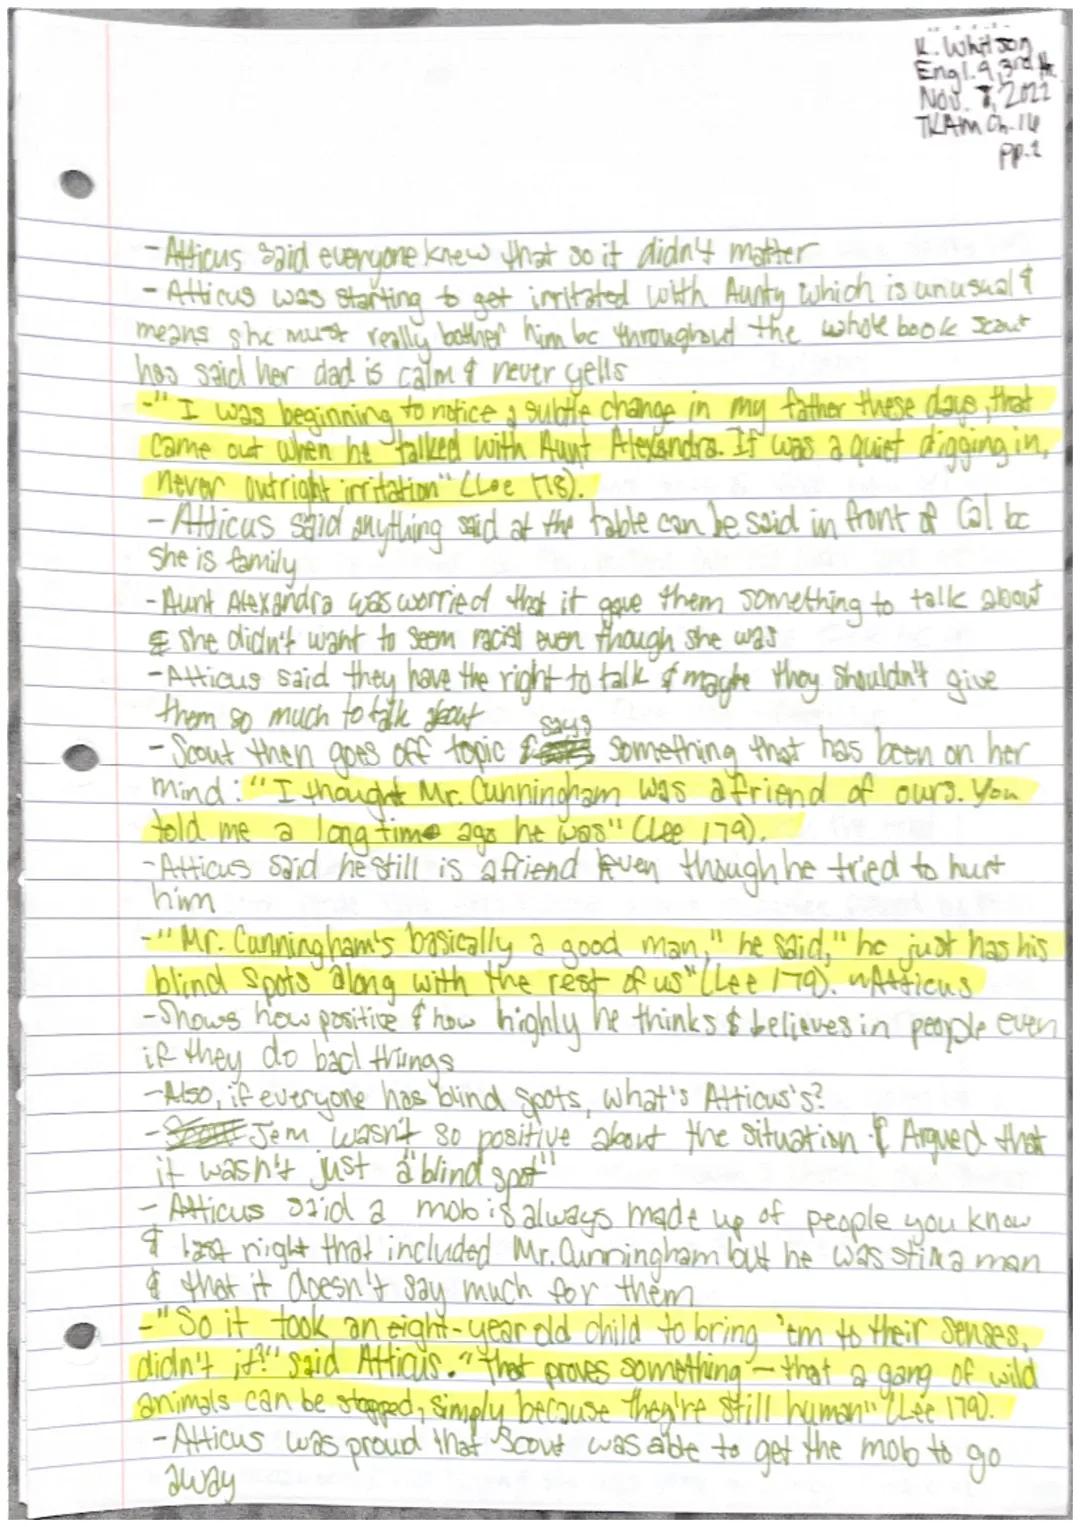 K. Whitson
Engl. 9, 3rd Hr.
Nov. 7, 2022
TKAM Ch. 16
pp. 2
- Atticus said everyone knew that so it didn't matter
- Atticus was starting to get irritated with Aunty which is unusual &
means she must really bother him bc throughout the whole book Scout
has said her dad is calm & never yells
- "I was beginning to notice a subtle change in my father these days, that
came out when he talked with Aunt Alexandra. It was a quiet digging in,
never outright irritation" (Lee 178).
- Atticus said anything said at the table can be said in front of Cal bc
she is family
- Aunt Alexandra was worried that it gave them something to talk about
& she didn't want to seem racist even though she was
- Atticus said they have the right to talk & maybe they shouldn't give
them so much to talk about
- Scout then goes off topic & says something that has been on her
mind: "I thought Mr. Cunningham was a friend of ours. You
told me a long time ago he was" (Lee 179).
- Atticus said he still is a friend even though he tried to hurt
him
- "Mr. Cunningham's basically a good man," he said, "he just has his
blind spots along with the rest of us" (Lee 179). ~Atticus
- Shows how positive & how highly he thinks & believes in people even
if they do bad things
- Also, if everyone has blind spots, what's Atticus's?
- Jem wasn't so positive about the situation & Argued that
it wasn't just a "blind spot"
- Atticus said a mob is always made up of people you know
& last night that included Mr. Cunningham but he was still a man
& that it doesn't say much for them
- "So it took an eight-year old child to bring 'em to their senses,
didn't it?" said Atticus. "That proves something - that a gang of wild
animals can be stopped, simply because they're still human" (Lee 179).
- Atticus was proud that Scout was able to get the mob to go
away